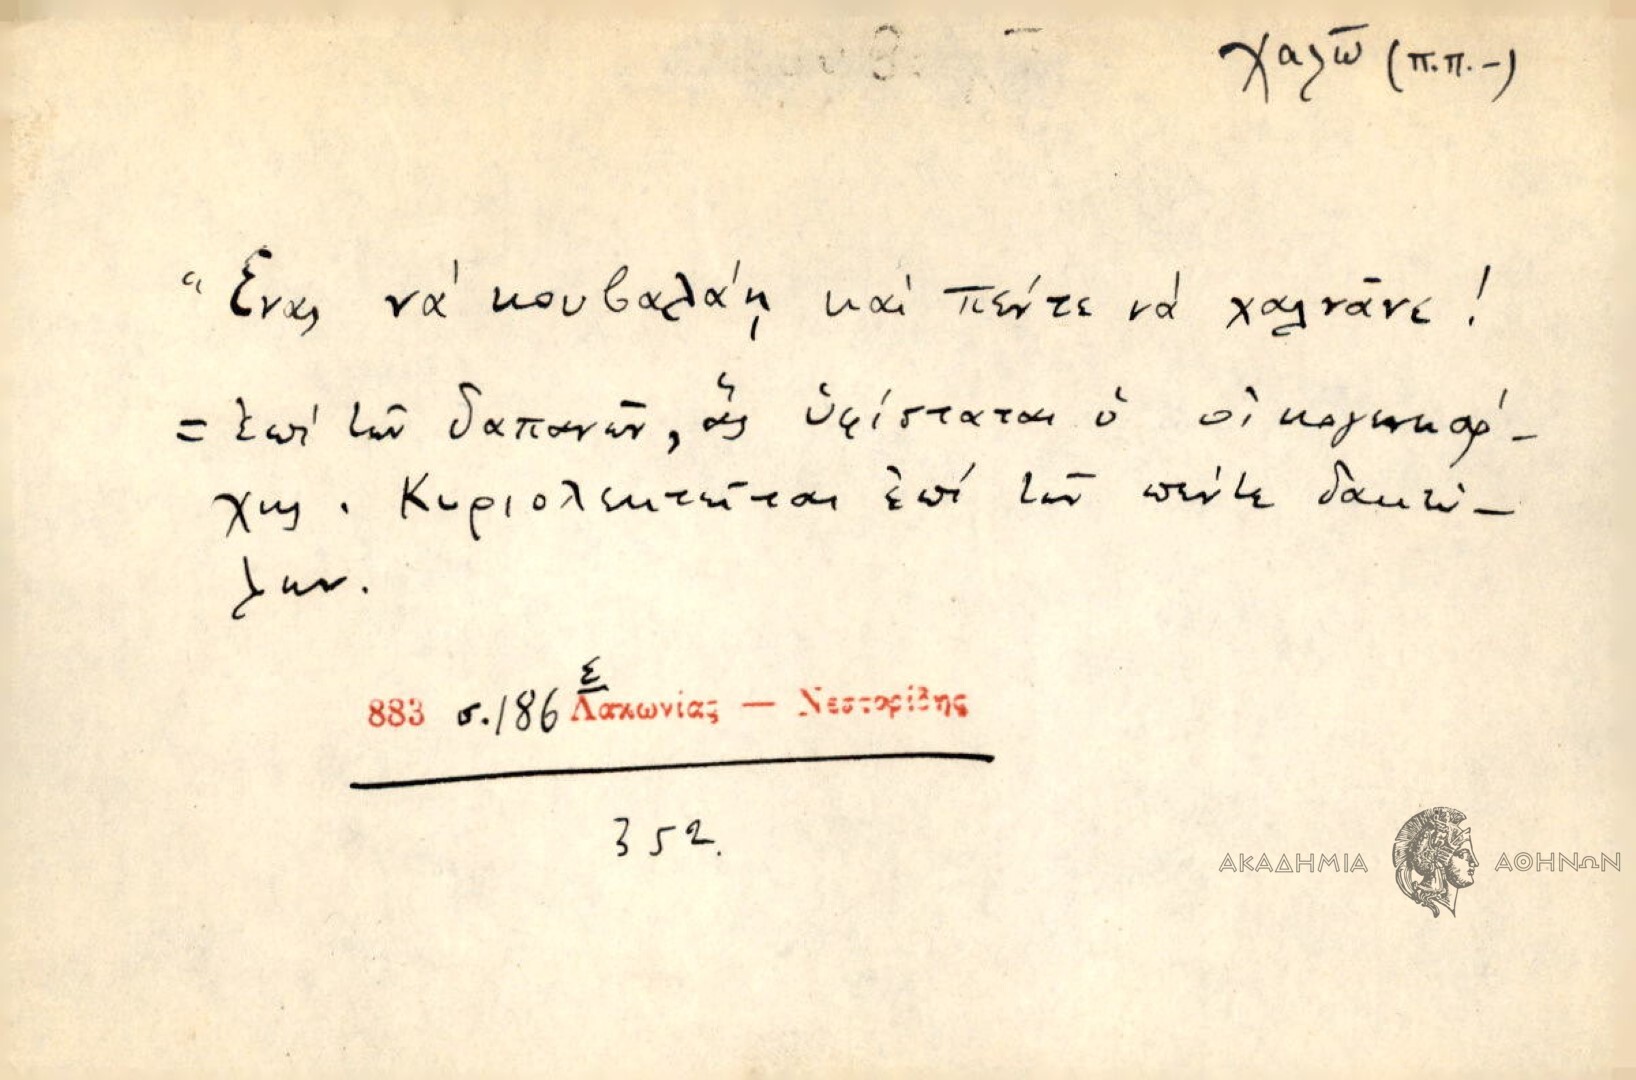 χαλῶ (π.π. -)
"Ένας νά κουβαλάῃ καί πέντε νά χαλνᾶνε!
= ἐπί τῶν δαπανῶν, ἅς ὑφίσταται ὁ οἰκογενειάρ-
χης. Κυριολεκτεῖται ἐπί τῶν πέντε δακτύ-
λων.
ε
883 σ. 186 Λακωνίας — Νεστορίδης
352.
ΑΚΑΔΗΜΙΑ ΑΘΗΝΩΝ